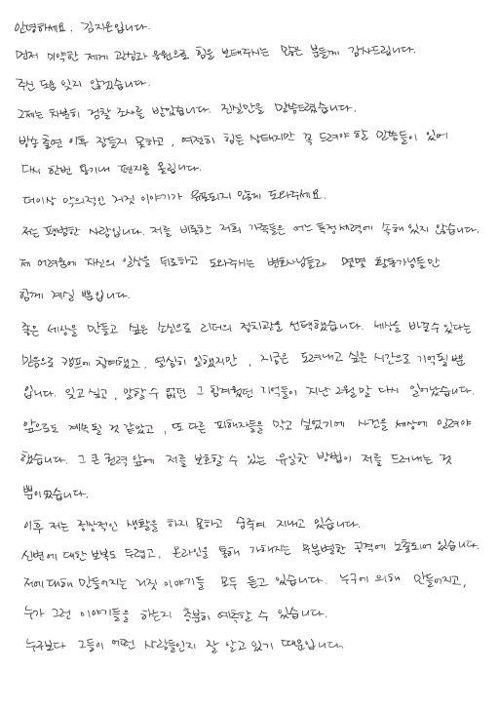 안녕하세요, 김지은입니다.
먼저 미약한 제게 관심과 응원으로 힘을 보태주시는 많은 분들께 감사드립니다.
주신 도움 잊지 않겠습니다.
그제는 차분히 검찰 조사를 받았습니다. 진실만을 말씀드렸습니다.
방송 출연 이후 잠들지 못하고, 여전히 힘든 상태지만 꼭 드려야 할 말씀들이 있어
다시 한번 용기내 편지를 올립니다.
더이상 악의적인 거짓 이야기가 유포되지 않게 도와주세요.
저는 평범한 사람입니다. 저를 비롯한 저희 가족들은 어느 특정 세력에 속해 있지 않습니다.
제 어려움에 자신의 일상을 뒤로하고 도와주시는 변호사님들과 몇몇 활동가님들만
함께 계실 뿐입니다.
좋은 세상을 만들고 싶은 소신으로 리더의 정치관을 선택했습니다. 세상을 바꿀수 있다는
믿음으로 캠프에 참여했고, 열심히 일했지만, 지금은 도려내고 싶은 시간으로 기억될 뿐
입니다. 잊고 싶고, 말할 수 없던 그 힘겨웠던 기억들이 지난 2월 말 다시 일어났습니다.
앞으로도 계속될 것 같았고, 또 다른 피해자들을 막고 싶었기에 사건을 세상에 알려야
했습니다. 그 큰 권력 앞에 저를 보호할 수 있는 유일한 방법이 저를 드러내는 것
뿐이었습니다.
이후 저는 정상적인 생활을 하지 못하고 숨죽여 지내고 있습니다.
신변에 대한 보복도 두렵고, 온라인을 통해 가해지는 무분별한 공격에 노출되어 있습니다.
저에 대해 만들어지는 거짓 이야기들 모두 듣고 있습니다. 누구에 의해 만들어지고,
누가 그런 이야기들을 하는지 충분히 예측할 수 있습니다.
누구보다 그들이 어떤 사람들인지 잘 알고 있기 때문입니다.